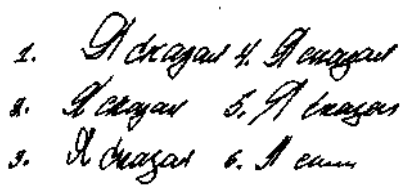 1. Я сказал 4. Я сказал
2. Я сказал 5. Я сказал
3. Я сказал 6. Я